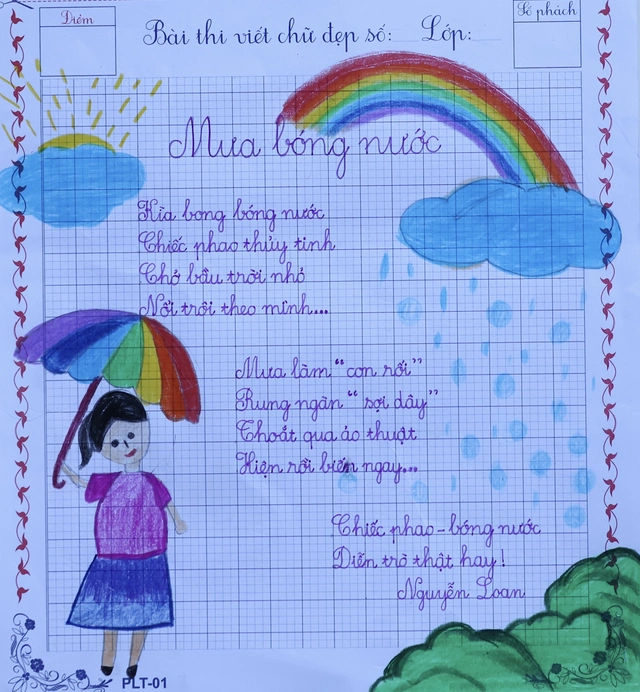 Điểm
Số phách
Bài thi viết chữ đẹp số: Lớp:
Mưa bóng nước
Kìa bong bóng nước
Chiếc phao thủy tinh
Chở bầu trời nhỏ
Nổi trôi theo mình...
Mưa làm "con rối"
Rung ngàn "sợi dây"
Thoắt qua ảo thuật
Hiện rồi biến ngay...
Chiếc phao - bóng nước
Diễn trò thật hay!
Nguyễn Loan
PLT-01